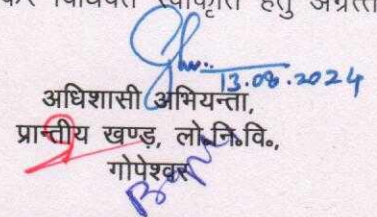 कर विधिवत स्वीकृति हेतु अग्रत्त
13.08.2024
अधिशासी अभियन्ता,
प्रान्तीय खण्ड, लो.नि.वि.,
गोपेश्वर